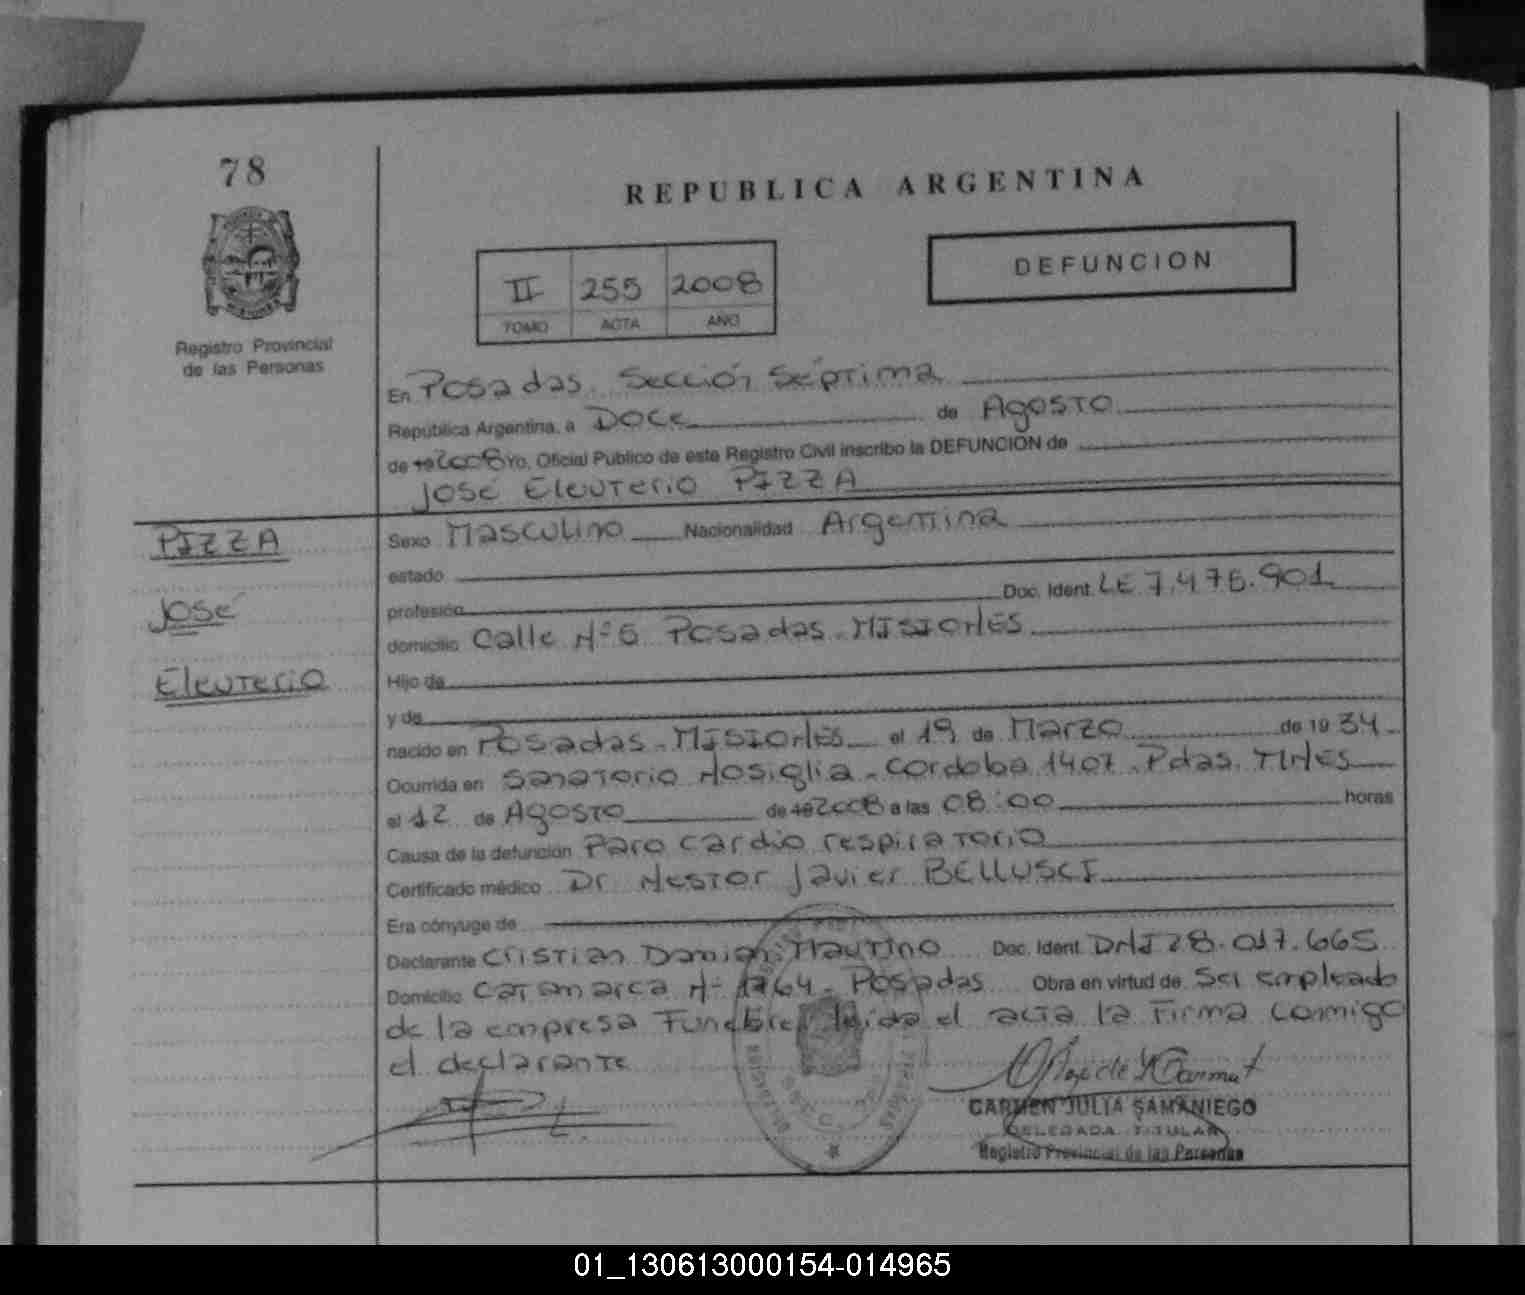 78
REPUBLICA ARGENTINA
DEFUNCION
II 255 2008
TOMO ACTA AÑO
Registro Provincial
de las Personas
En Posadas. Sección Séptima
República Argentina, a Doce de Agosto
de 19 2008 Yo, Oficial Público de este Registro Civil inscribo la DEFUNCION de
José Eleuterio PIZZA
PIZZA
José
Eleuterio
Sexo Masculino Nacionalidad Argentina
estado
profesión Doc. Ident. LE 7.476.901
domicilio Calle Nº 6 Posadas. MISIONES
Hijo de
y de
nacido en Posadas - MISIONES el 19 de Marzo de 19 34
Ocurrida en Sanatorio Nosiglia - Cordoba 1407 - Pdas. MNES
el 12 de Agosto de 19 2008 a las 08:00 horas
Causa de la defunción Paro cardio respiratorio
Certificado médico Dr. Nestor Javier BELLUSCI
Era cónyuge de
Declarante Cristian Damian Mautino Doc. Ident. DNI 28.017.665
Domicilio Catamarca Nº 1764 - Posadas Obra en virtud de Ser empleado
de la empresa Funebre leida el acta la firma conmigo
el declarante
CARMEN JULIA SAMANIEGO
DELEGADA TITULAR
Registro Provincial de las Personas
01_130613000154-014965